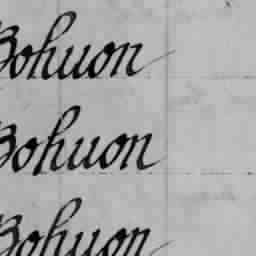 Bohuon
Bohuon
Bohuon